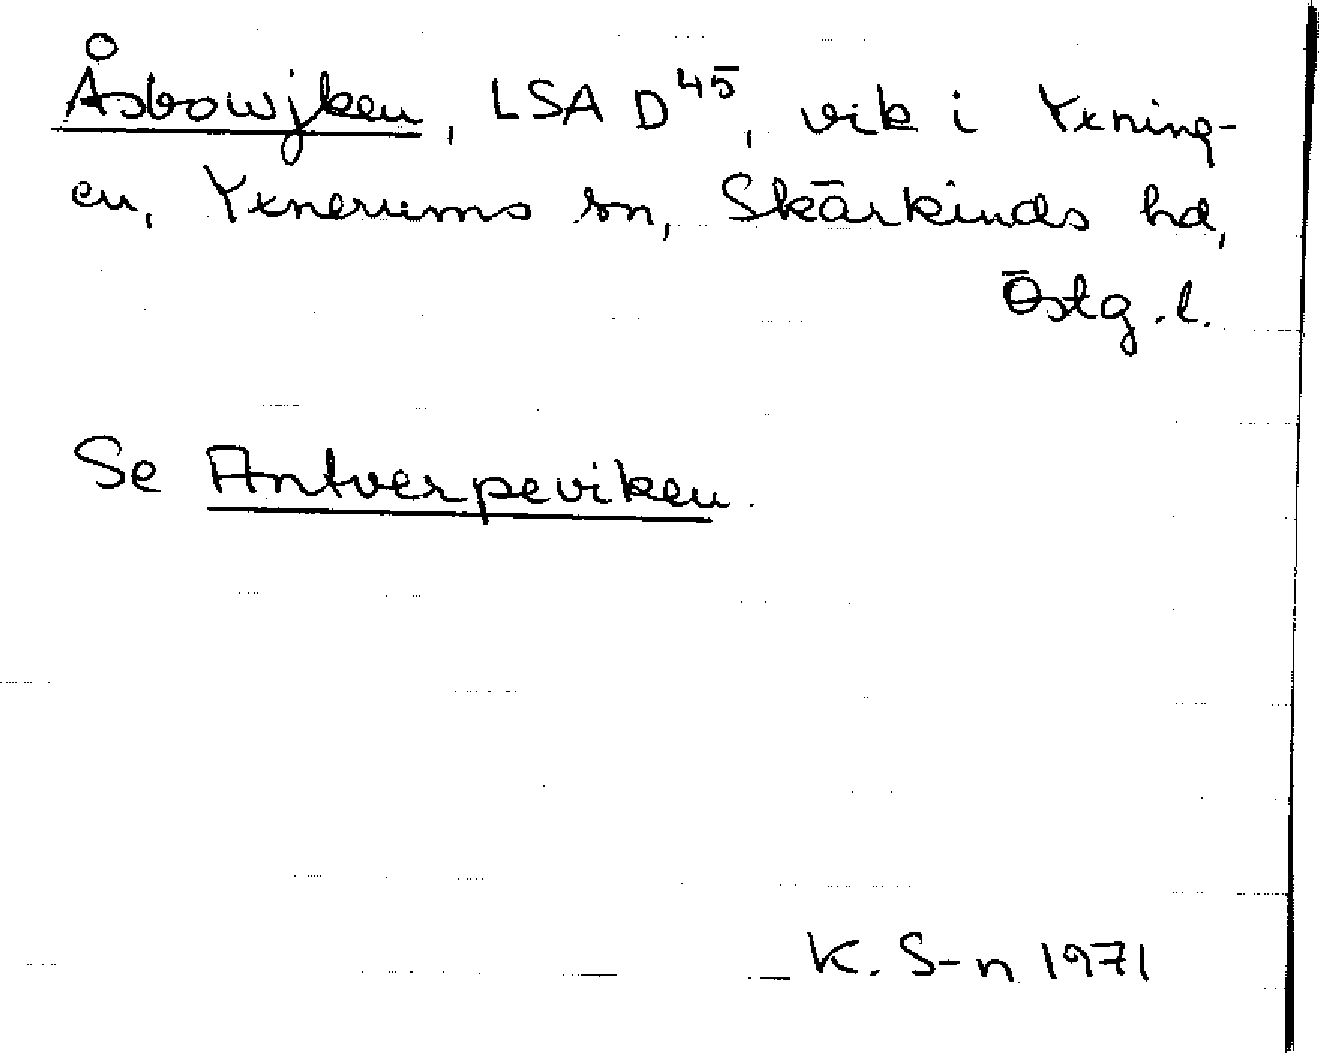 Åsbowjken, LSA D45, vik i Yxning-
en, Yxnerums sn, Skärkinds hd,
Östg.l.
Se Antverpeviken.
K. S-n 1971